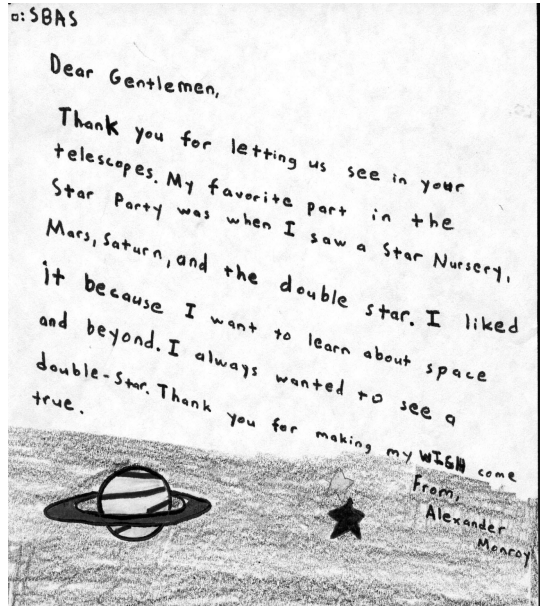 o:SBAS
Dear Gentlemen,
Thank you for letting us see in your
telescopes. My favorite part in the
Star Party was when I saw a Star Nursery,
Mars, Saturn, and the double star. I liked
it because I want to learn about space
and beyond. I always wanted to see a
double-Star. Thank you for making my WISH come
true.
From,
Alexander
Monroy